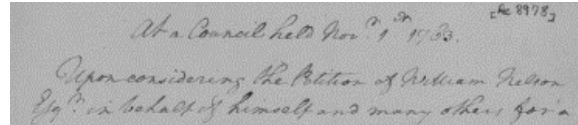 [Ac 8978]
At a Council held Novr. 1st 1783.
Upon considering the Petition of William Nelson
Esqr. in behalf of himself and many others for a